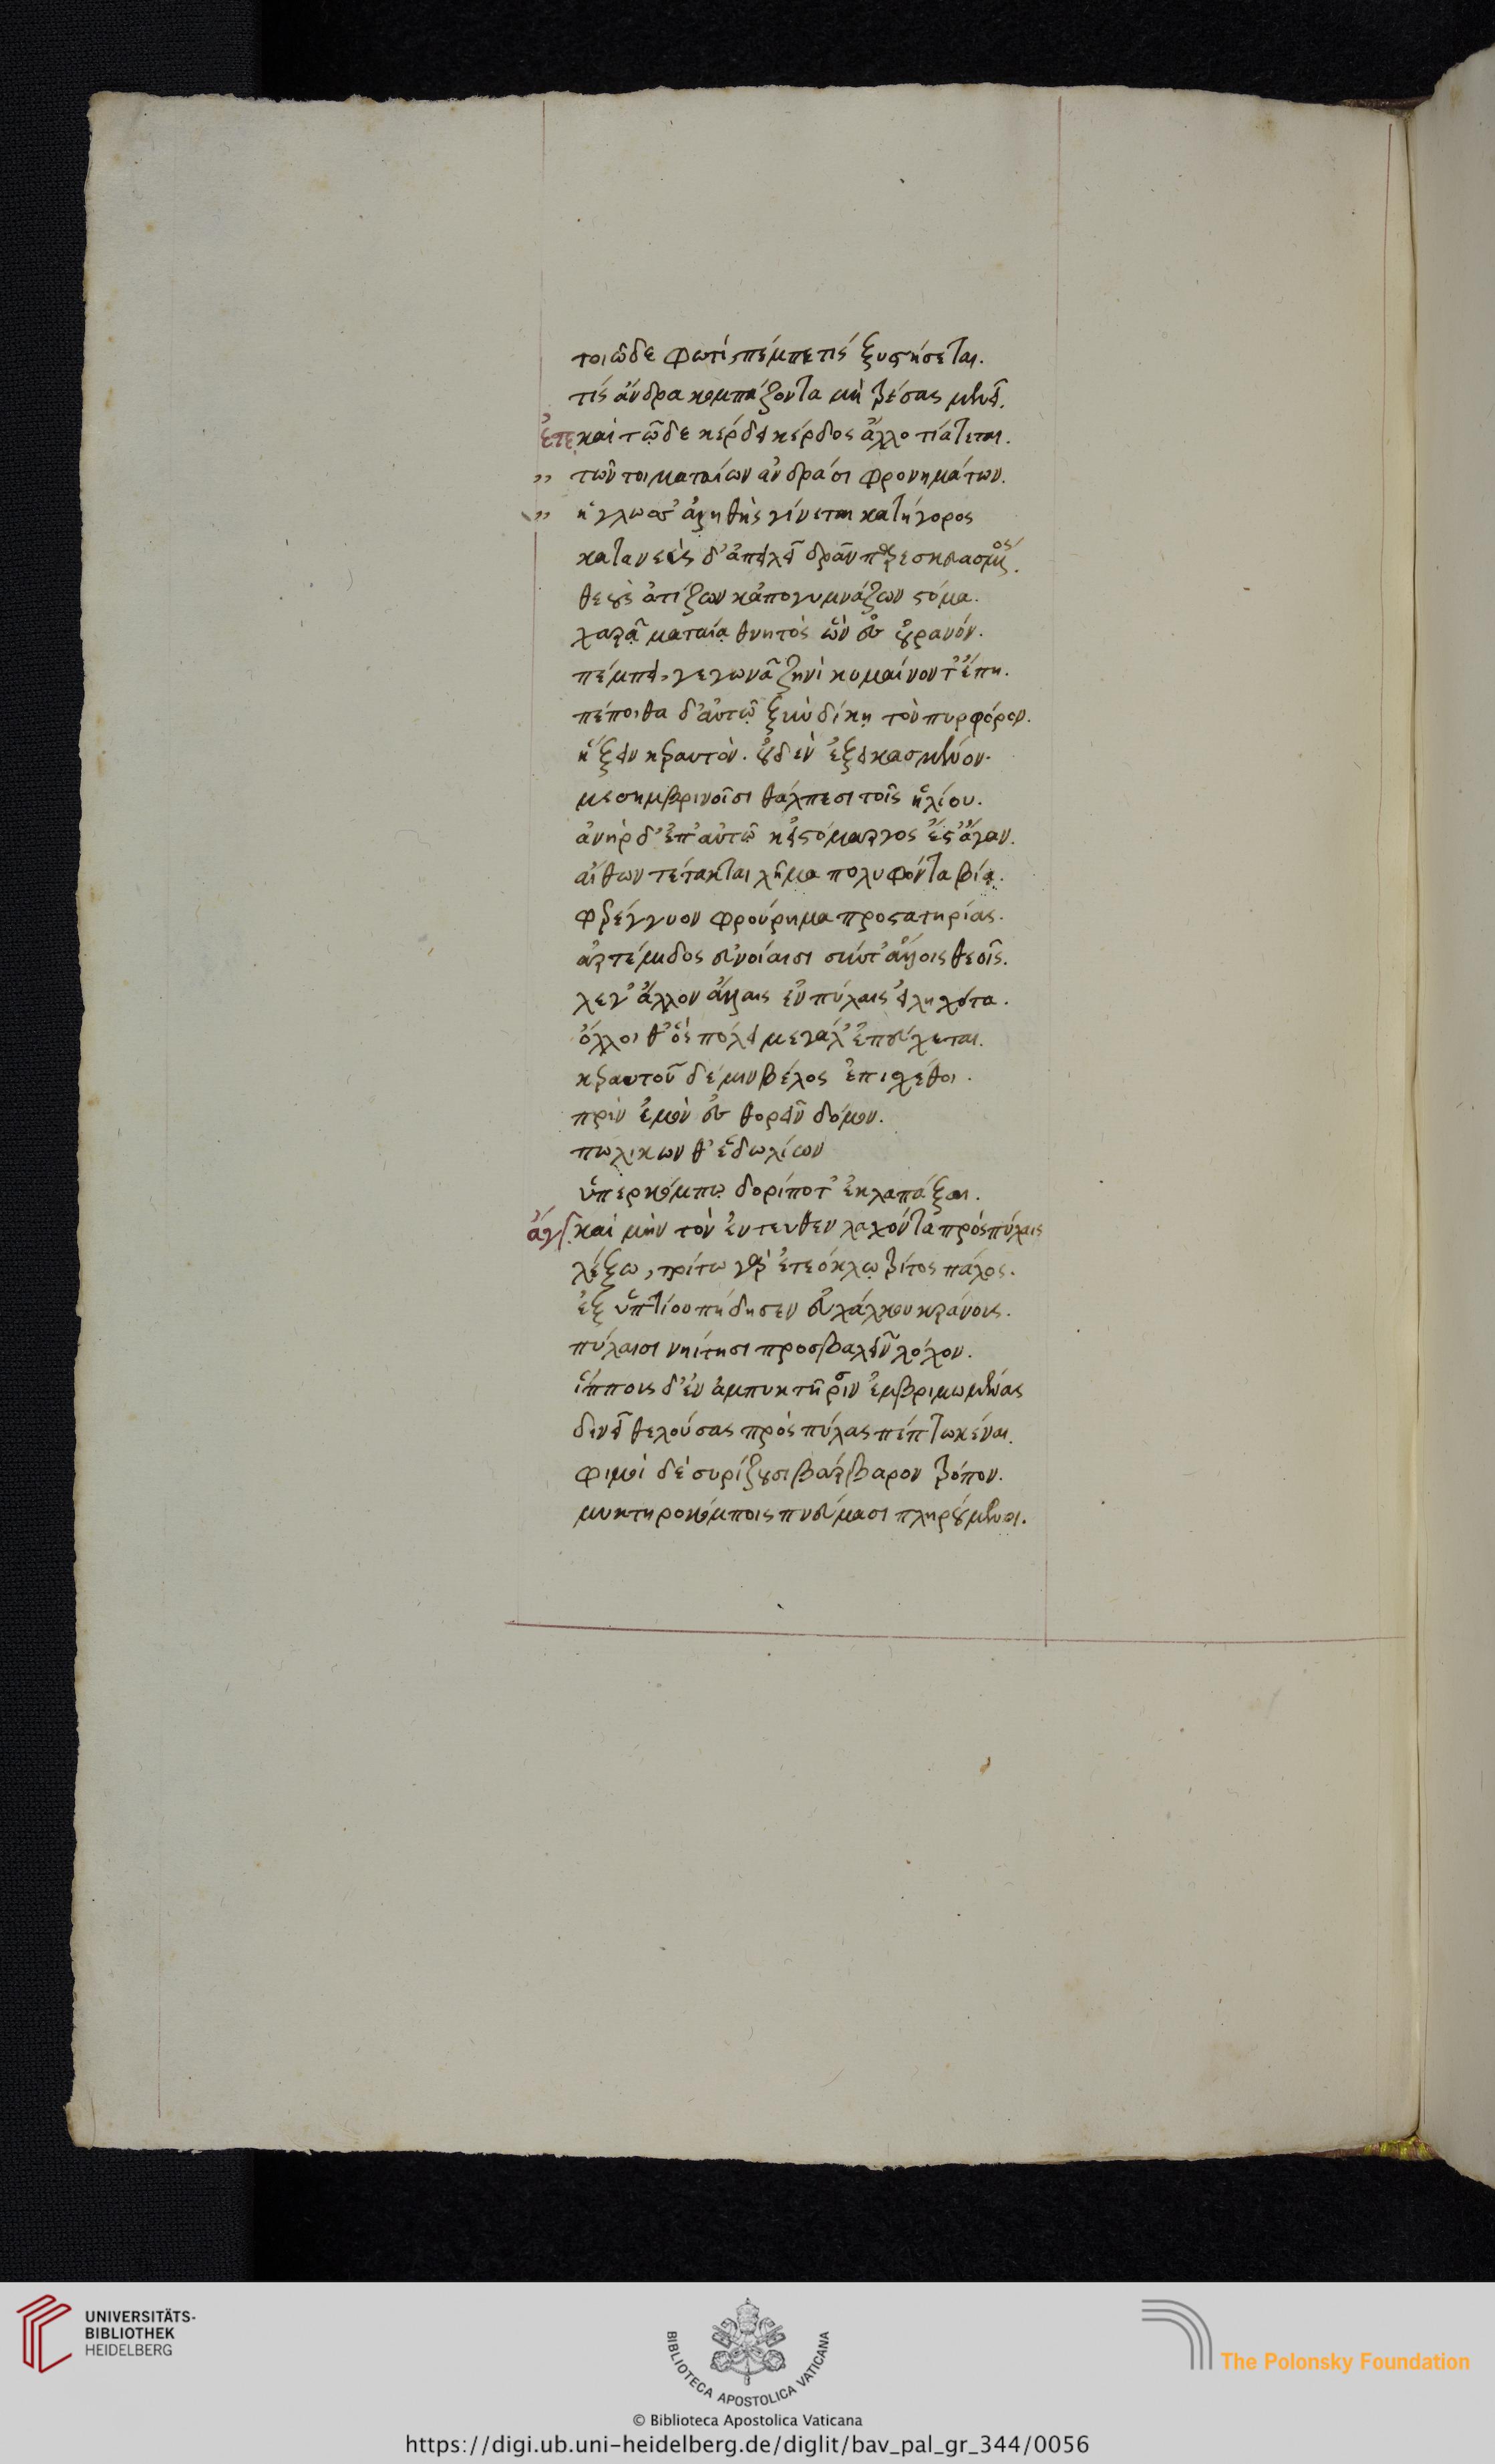 τοιῶδε φωτὶ, πέμπε τίς ξυστήσεται.
τίς ἄνδρα κομπάζοντα μὴ τρέσας μενεῖ.
ἐτε. καὶ τῶδε κέρδει κέρδος ἄλλο τίκτεται.
" τῶν τοι ματαίων ἀνδράσι φρονημάτων.
" ἡ γλῶσσ' ἀληθὴς γίνεται κατήγορος
καπανεὺς δ' ἀπειλεῖ δρᾶν παρεσκευασμένος.
θεοὺς ἀτίζων κἀπογυμνάζων στόμα.
χαρᾷ ματαίᾳ θνητὸς ὢν εἰς οὐρανόν.
πέμπει, γεγωνᾶ ζηνὶ κυμαίνοντ' ἔπη.
πέποιθα δ' αὐτῶ ξὺν δίκῃ τὸν πυρφόρον.
ἥξειν κεραυνὸν. οὐδὲν ἐξεικασμένον.
μεσημβρινοῖσι θάλπεσι τοῖς ἡλίου.
ἀνὴρ δ' ἐπ' αὐτῶ κεἰ στόμαργος ἔστ' ἄγαν.
αἴθων τέτακται λῆμα πολυφόντα βία.
φερέγγυον φρούρημα προστατηρίας.
ἀρτέμιδος εὐνοίαισι σύν τ' ἄλλοις θεοῖς.
λέγ' ἄλλον ἄλλαις ἐν πύλαις εἰληχότα.
ὄλλοιθ' ὃς πόλει μεγάλ' ἐπεύχεται.
κεραυνοῦ δέ μιν βέλος ἐπισχέθοι.
πρὶν ἐμὸν εἰσθορεῖν δόμον.
πωλικων θ' ἑδωλίων
ὑπερκόμπω δορί ποτ' ἐκλαπάξαι.
ἄγγ. καὶ μὴν τὸν ἐντευθεν λαχόντα πρὸς πύλαις
λέξω, τρίτω γὰρ ἐτεόκλῳ τρίτος πάλος.
ἐξ ὑπτίου πήδησεν εὐχάλκου κράνους.
πύλαισι νηίτησι προσβαλεῖν λόχον.
ἵππους δ' ἐν ἀμπυκτῆρσιν ἐμβριμωμένας
δινεῖ θελούσας πρὸς πύλας πεπτωκέναι.
φιμοὶ δὲ συρίζουσι βάρβαρον τρόπον.
μυκτηροκόμποις πνεύμασι πληρούμενοι.
UNIVERSITÄTS-
BIBLIOTHEK
HEIDELBERG
BIBLIOTECA APOSTOLICA VATICANA
The Polonsky Foundation
© Biblioteca Apostolica Vaticana
https://digi.ub.uni-heidelberg.de/diglit/bav_pal_gr_344/0056